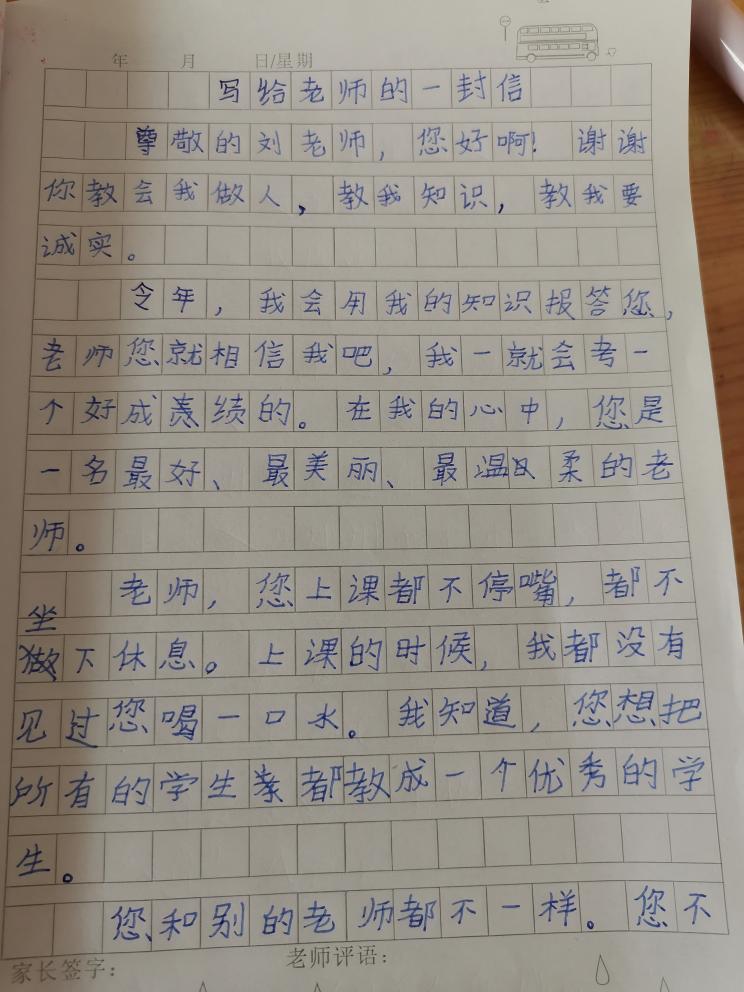 年 月 日/星期
写给老师的一封信
尊敬的刘老师，您好啊！谢谢
你教会我做人，教我知识，教我要
诚实。
今年，我会用我的知识报答您，
老师您就相信我吧，我一就会考一
个好成绩的。在我的心中，您是
一名最好、最美丽、最温柔的老
师。
老师，您上课都不停嘴，都不
坐下休息。上课的时候，我都没有
见过您喝一口水。我知道，您想把
所有的学生都教成一个优秀的学
生。
您和别的老师都不一样。您不
家长签字：
老师评语：